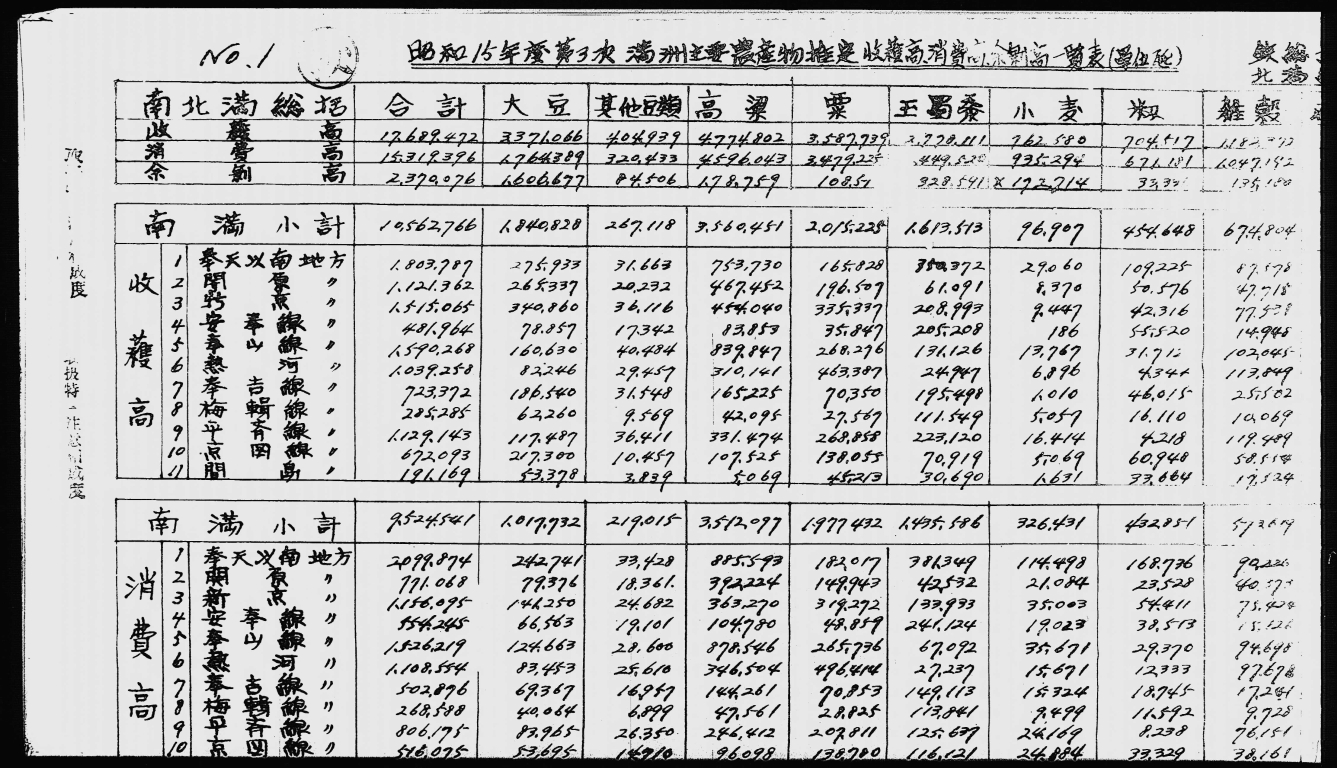 No.1
昭和15年度第3次満洲主要農産物推定收穫高消費高余剰高一覧表(單位瓲)
北満
南北満総括 合計 大豆 其他豆類 高粱 粟 玉蜀黍 小麦 籾 雜穀
收穫高 17,689,472 3,371,066 404,939 4,774,802 3,587,739 762,580 704,517
消費高 15,319,396 1,764,389 320,433 4,596,043 3,479,225 935,294 671,181 1,047,192
余剰高 2,370,076 1,606,677 84,506 178,759 328,591 ×172,714
南満小計 10,562,766 1,840,828 267,118 3,560,451 2,015,225 1,613,513 96,907 454,648 674,804
收穫高
1 奉天以南地方 1,803,787 275,933 31,663 753,730 165,828 350,372 29,060 109,225 87,578
2 開原〃 1,121,362 265,337 20,232 467,452 196,507 61,091 8,370 50,576 47,718
3 新京〃 1,515,065 340,860 36,116 454,040 335,337 208,993 9,447 42,316 77,538
4 安奉線〃 481,964 78,857 17,342 83,853 35,847 205,208 186 55,520 14,948
5 奉山線〃 1,590,268 160,630 40,484 839,847 268,276 131,126 13,767 102,045
6 熱河〃 1,039,258 82,246 29,457 310,141 463,387 24,947 6,896 4,344 113,849
7 奉吉線〃 723,372 186,540 31,548 165,225 70,350 195,498 1,010 46,015 25,502
8 梅輯線〃 285,285 62,260 9,569 42,095 27,567 111,549 5,057 16,110 10,069
9 平斉線〃 1,129,143 117,487 36,411 331,474 268,858 223,120 16,414 4,218 119,489
10 京図線〃 672,093 217,300 10,457 107,525 138,055 70,919 5,069 60,948
11 間島〃 191,169 53,378 3,839 5,069 45,213 30,690 1,631 33,664 17,524
南満小計 9,524,541 1,017,732 219,015 3,512,097 1,977,432 1,435,586 326,431 432,851
消費高
1 奉天以南地方 2,099,874 242,741 33,428 885,593 182,017 381,349 114,498 168,736 90,226
2 開原〃 771,068 79,376 18,361 392,224 149,943 42,532 21,084 23,528
3 新京〃 1,156,095 141,250 24,682 363,270 319,272 133,933 35,003 54,411 75,424
4 安奉線〃 554,245 66,563 19,101 104,780 48,859 241,124 19,023 38,513
5 奉山線〃 1,526,219 124,663 28,600 878,546 265,736 67,092 35,671 29,370 94,698
6 熱河〃 1,108,554 83,453 25,610 346,504 496,414 27,237 15,671 12,333 97,678
7 奉吉線〃 502,876 69,367 16,957 144,261 70,853 149,113 15,324 18,745 17,241
8 梅輯線〃 268,588 40,064 6,899 47,561 28,825 113,841 9,499 11,592 9,728
9 平斉線〃 806,175 83,965 26,350 246,412 207,811 125,637 24,169 8,238 76,151
10 京図線〃 516,075 53,695 14,710 96,098 138,780 116,121 24,884 33,329 38,161